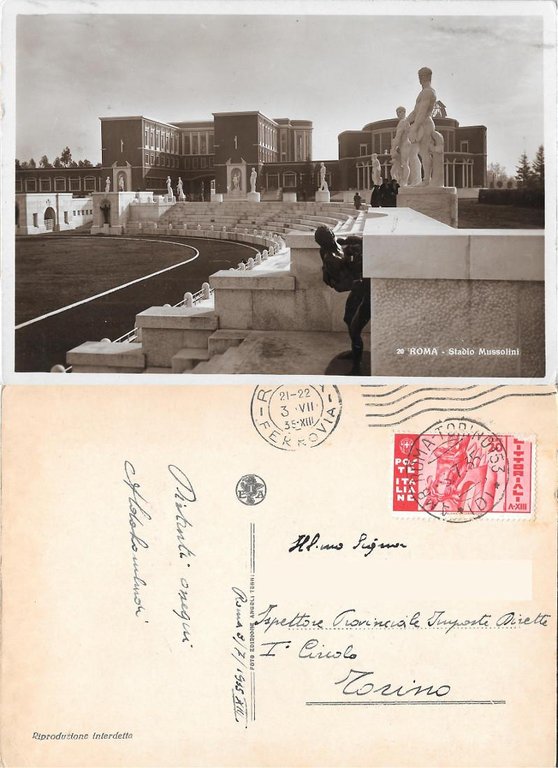 20 ROMA - Stadio Mussolini
21-22
3 · VII
35·XIII
FERROVIA
POSTE
ITALIANE
LITTORIALI
20
A·XIII
Distinti ossequi
Roma 3/7/1935 XIII.
Ill.mo Signor
Ispettore Provinciale Imposte Dirette
I° Circolo
Torino
Riproduzione interdetta